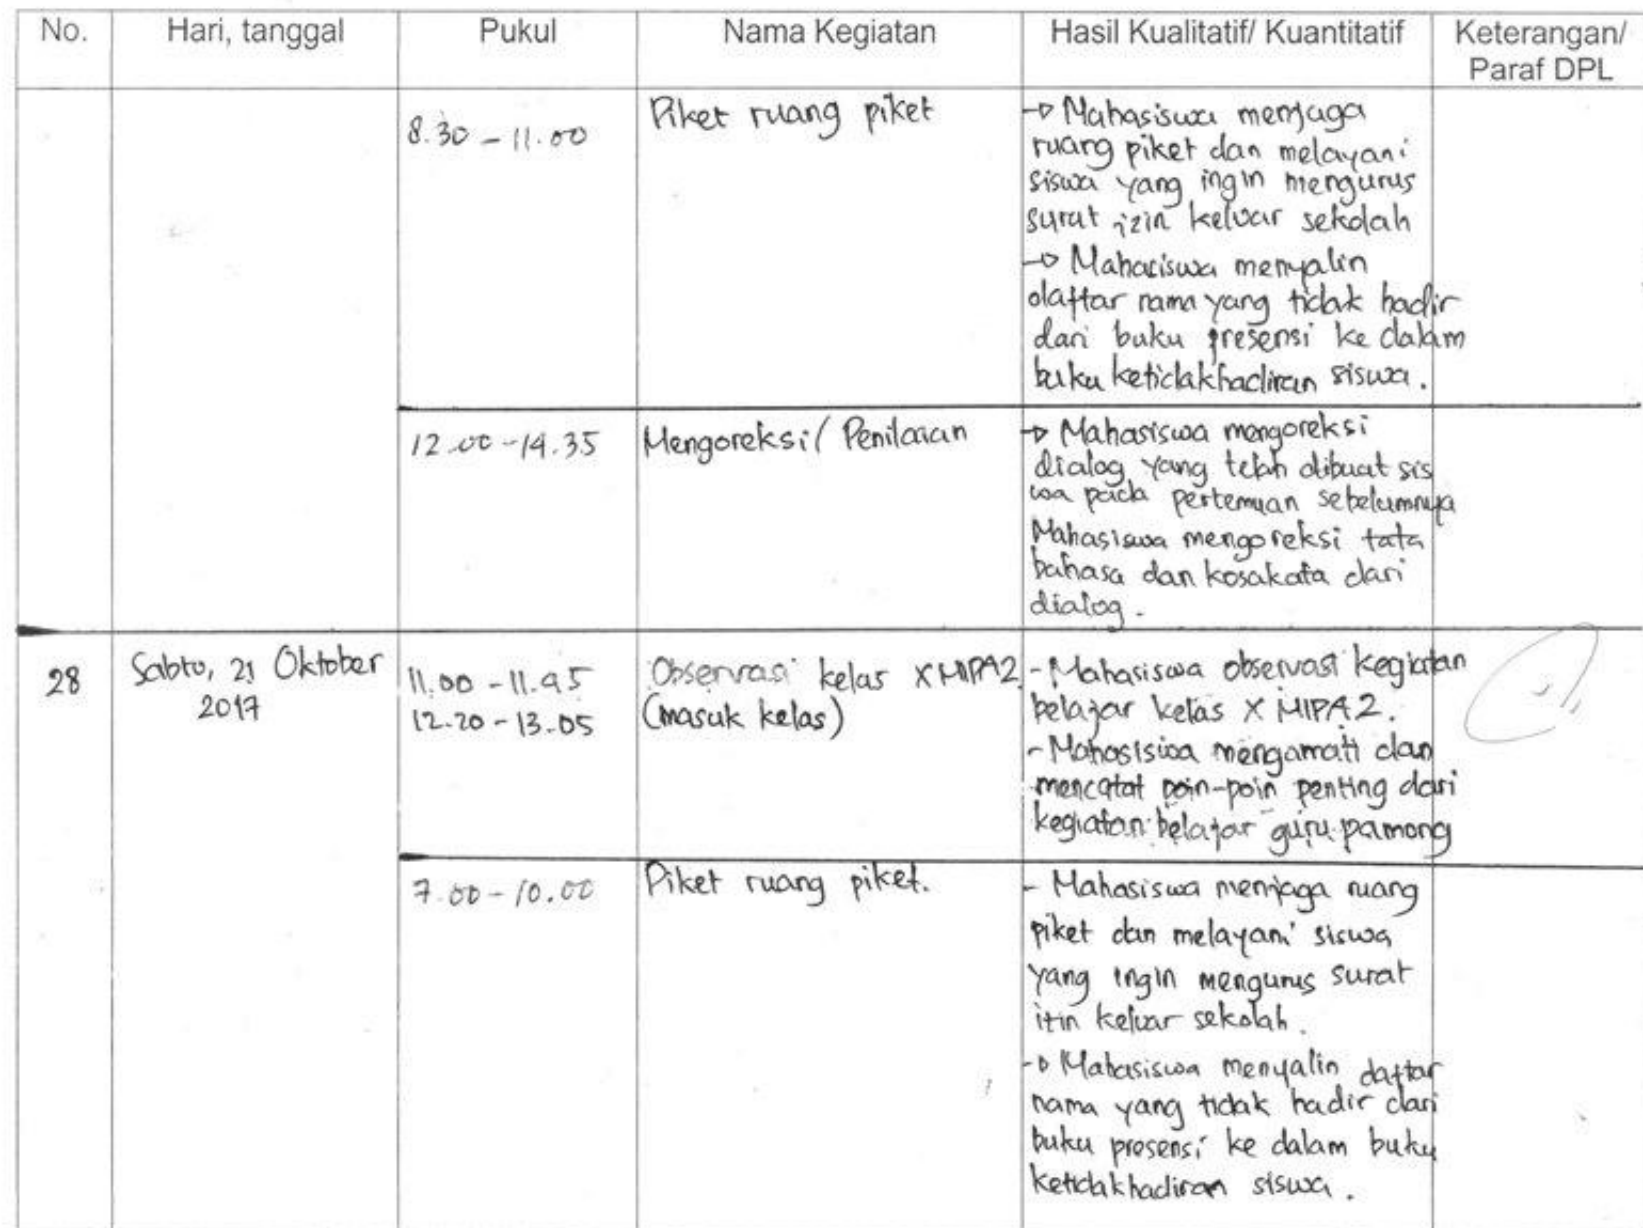 No.
Hari, tanggal
Pukul
Nama Kegiatan
Hasil Kualitatif/ Kuantitatif
Keterangan/
Paraf DPL
8.30 - 11.00
Piket ruang piket
→ Mahasiswa menjaga
ruang piket dan melayani
siswa yang ingin mengurus
surat izin keluar sekolah
→ Mahasiswa menyalin
daftar nama yang tidak hadir
dari buku presensi ke dalam
buku ketidakhadiran siswa.
12.00 - 14.35
Mengoreksi/ Penilaian
→ Mahasiswa mengoreksi
dialog yang telah dibuat sis
wa pada pertemuan sebelumnya
Mahasiswa mengoreksi tata
bahasa dan kosakata dari
dialog.
28
Sabtu, 21 Oktober
2017
11.00 - 11.45
12.20 - 13.05
Observasi kelas X MIPA2
(masuk kelas)
- Mahasiswa observasi kegiatan
belajar kelas X MIPA 2.
- Mahasiswa mengamati dan
mencatat poin-poin penting dari
kegiatan belajar guru pamong
7.00 - 10.00
Piket ruang piket.
- Mahasiswa menjaga ruang
piket dan melayani siswa
yang ingin mengurus surat
izin keluar sekolah.
→ Mahasiswa menyalin daftar
nama yang tidak hadir dari
buku presensi ke dalam buku
ketidakhadiran siswa.